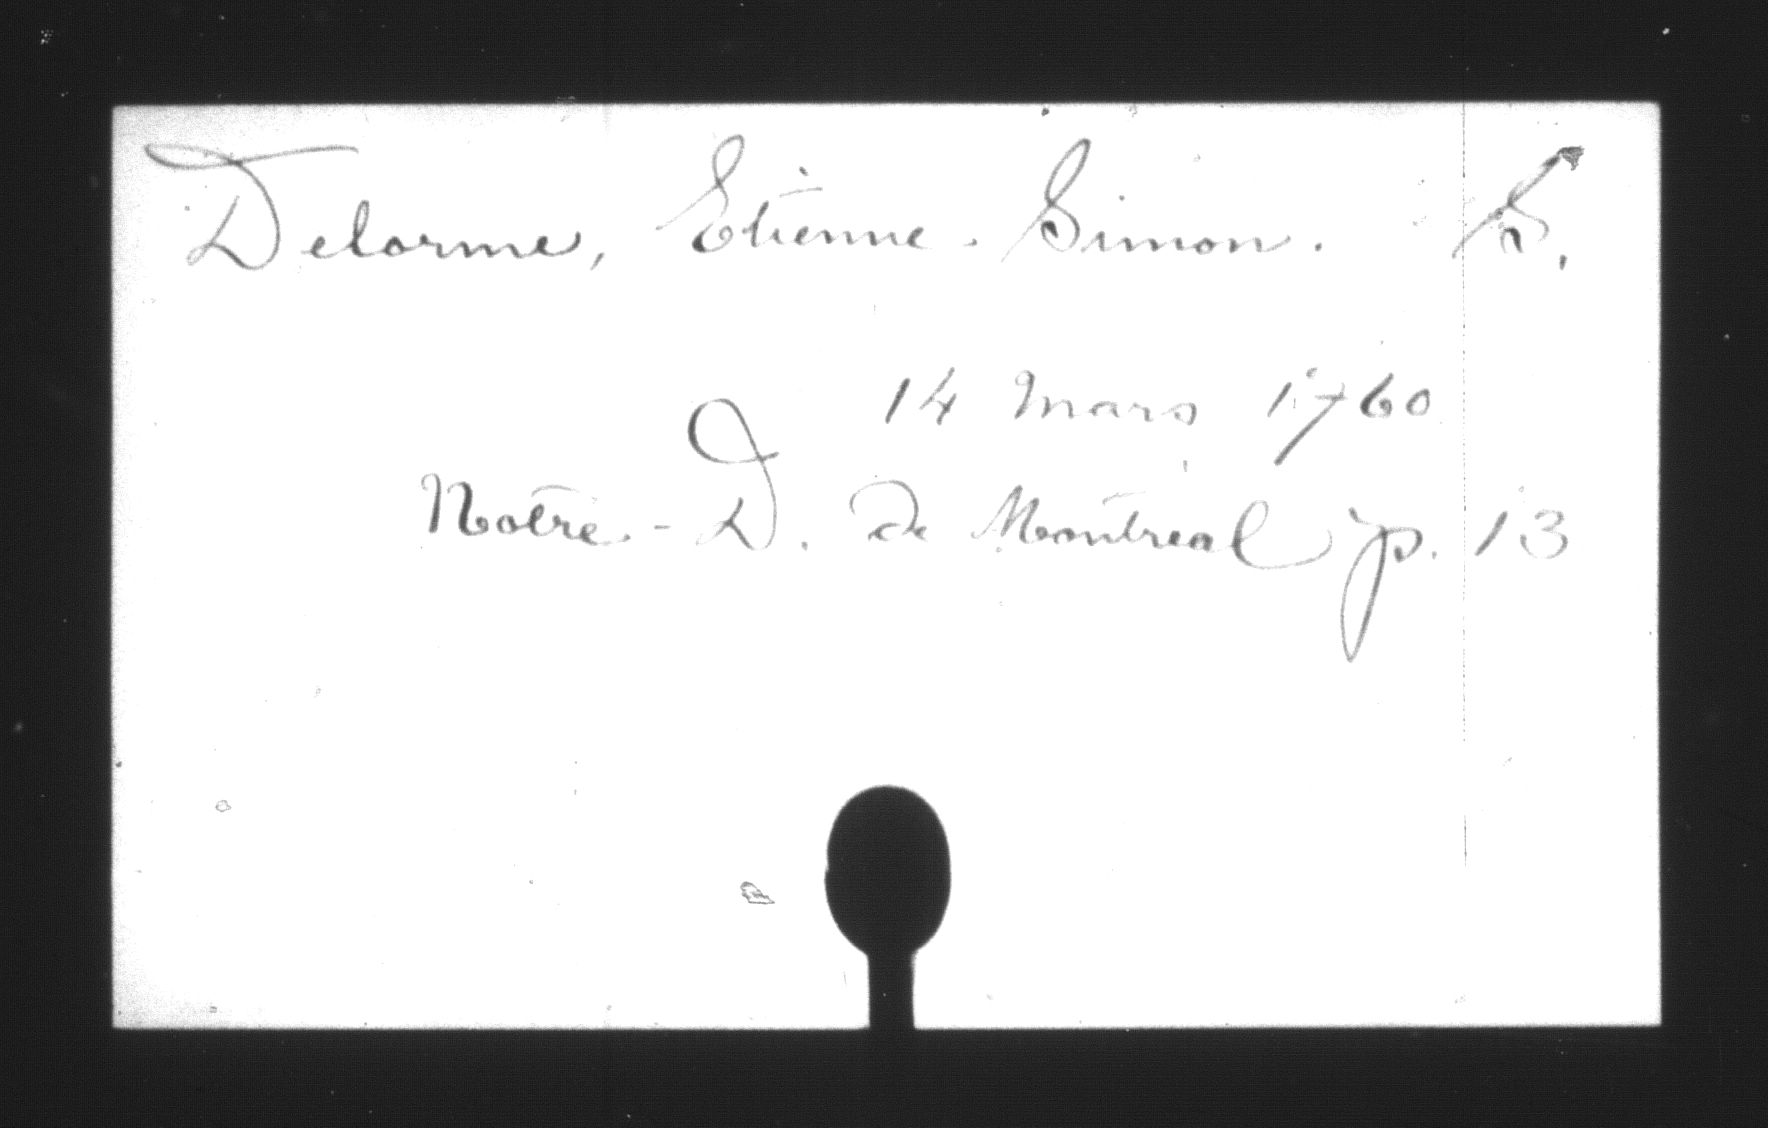 Delorme, Etienne. Simon. S.
14 Mars 1760
Notre-D. de Montreal p. 13